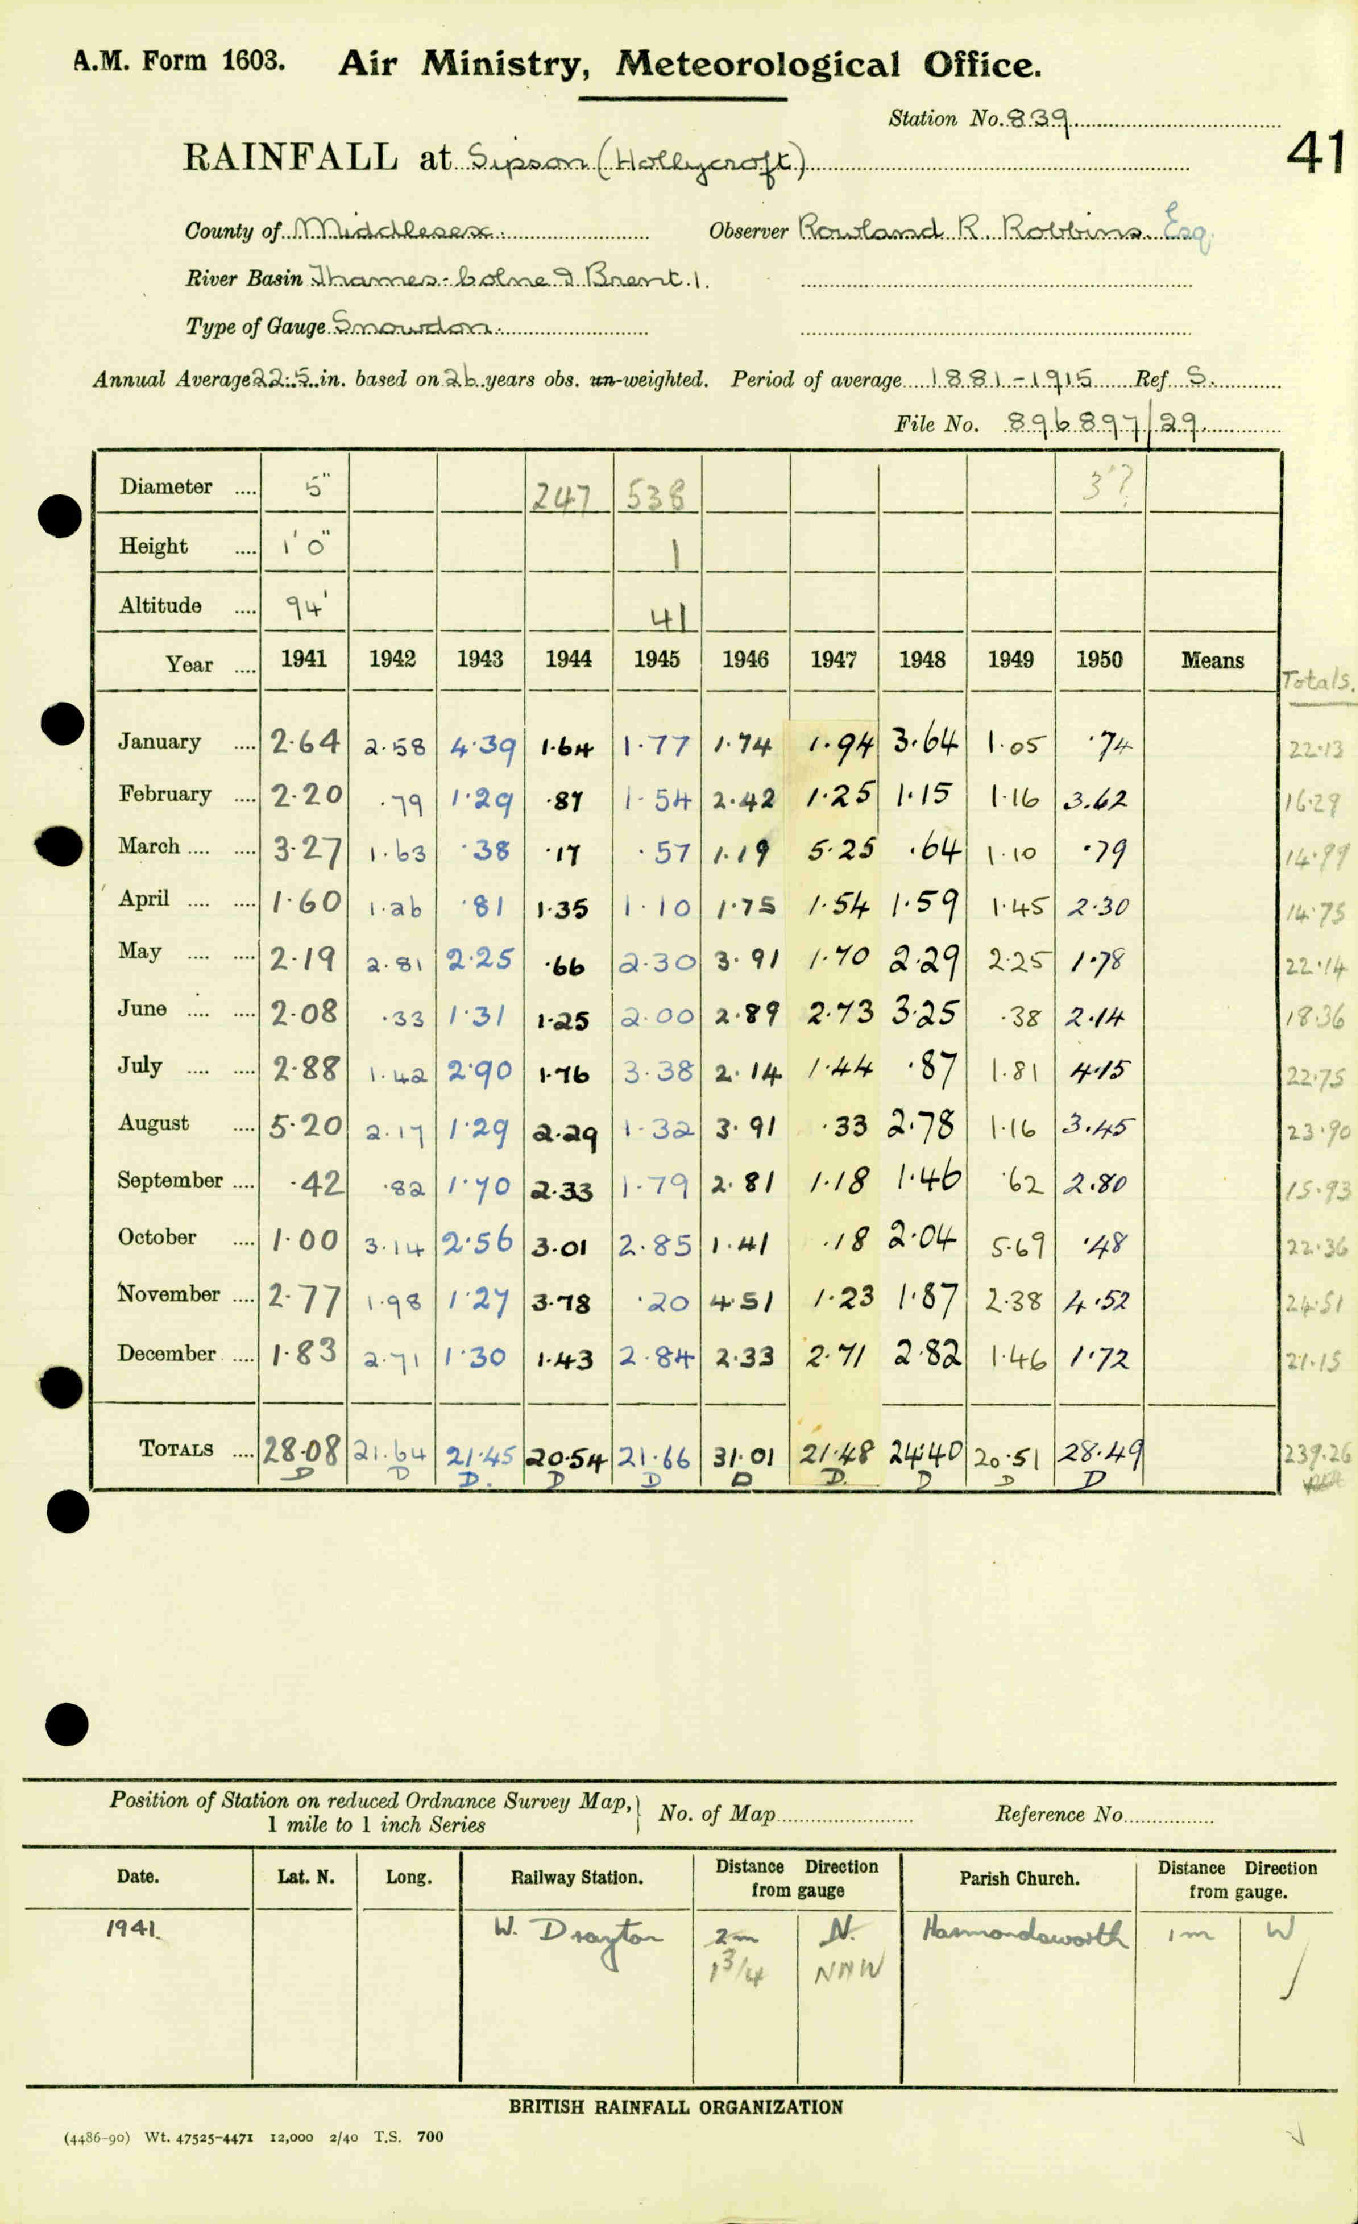 A.M. Form 1603. Air Ministry, Meteorological Office.
Station No. 839
41
RAINFALL at Sipson (Hollycroft)
County of Middlesex. Observer Rowland R. Robbins. Esq.
River Basin Thames - Colne & Brent. 1.
Type of Gauge Snowdon.
Annual Average 22.5 in. based on 26 years obs. un-weighted. Period of average 1881-1915 Ref S.
File No. 896897/29
Diameter .... 5" 247 538 3'?
Height .... 1'0" 1
Altitude .... 94' 41
Year .... 1941 1942 1943 1944 1945 1946 1947 1948 1949 1950 Means Totals.
January .... 2.64 2.58 4.39 1.64 1.77 1.74 1.94 3.64 1.05 .74 22.13
February .... 2.20 .79 1.29 .87 1.54 2.42 1.25 1.15 1.16 3.62 16.29
March .... .... 3.27 1.63 .38 .17 .57 1.19 5.25 .64 1.10 .79 14.99
April .... .... 1.60 1.26 .81 1.35 1.10 1.75 1.54 1.59 1.45 2.30 14.75
May .... .... 2.19 2.81 2.25 .66 2.30 3.91 1.70 2.29 2.25 1.78 22.14
June .... .... 2.08 .33 1.31 1.25 2.00 2.89 2.73 3.25 .38 2.14 18.36
July .... .... 2.88 1.42 2.90 1.76 3.38 2.14 1.44 .87 1.81 4.15 22.75
August .... 5.20 2.17 1.29 2.29 1.32 3.91 .33 2.78 1.16 3.45 23.90
September .... .42 .82 1.70 2.33 1.79 2.81 1.18 1.46 .62 2.80 15.93
October .... 1.00 3.14 2.56 3.01 2.85 1.41 .18 2.04 5.69 .48 22.36
November .... 2.77 1.98 1.27 3.78 .20 4.51 1.23 1.87 2.38 4.52 24.51
December .... 1.83 2.71 1.30 1.43 2.84 2.33 2.71 2.82 1.46 1.72 21.15
TOTALS .... 28.08 21.64 21.45 20.54 21.66 31.01 21.48 24.40 20.51 28.49 239.26
D D D. D D D D. D D D
Position of Station on reduced Ordnance Survey Map,
1 mile to 1 inch Series
No. of Map Reference No.
Date. Lat. N. Long. Railway Station. Distance Direction from gauge Parish Church. Distance Direction from gauge.
1941. W. Drayton 2m N. Harmondsworth 1m W
1 3/4 NNW
BRITISH RAINFALL ORGANIZATION
(4486-90) Wt. 47525-4471 12,000 2/40 T.S. 700